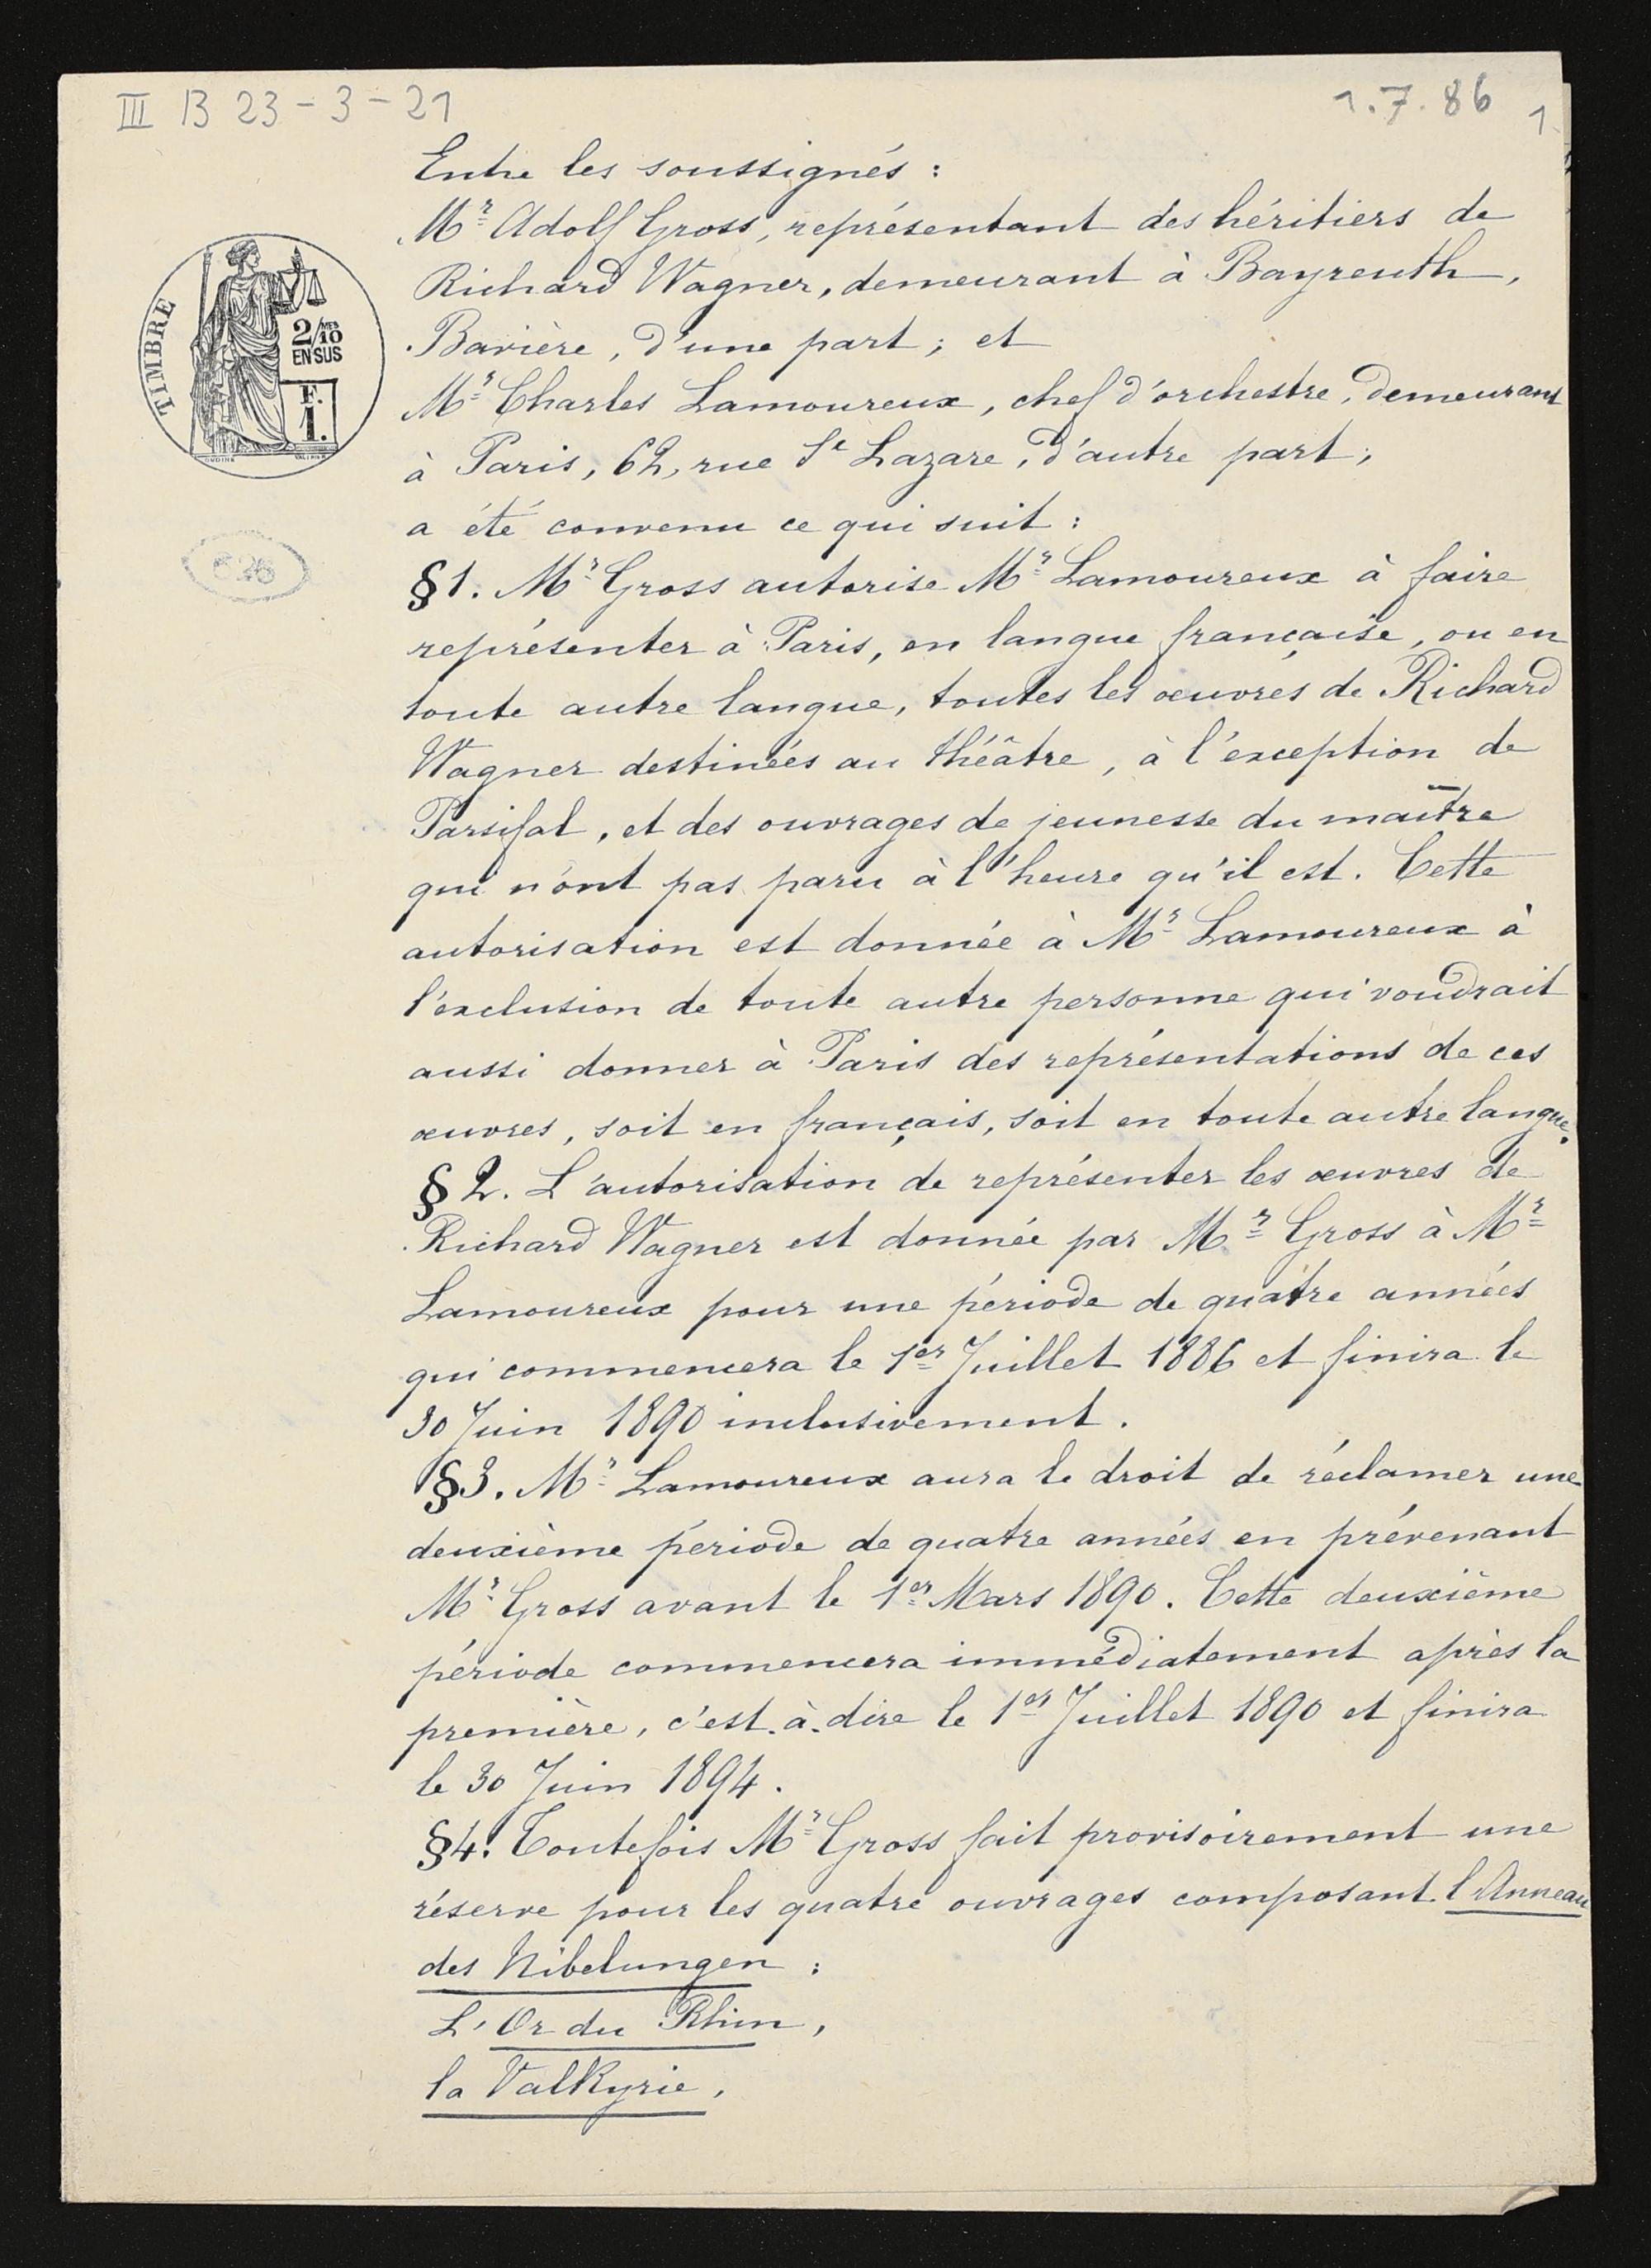 III B 23-3-21
1.7.86
1
Entre les soussignés :
Mr Adolf Gross, représentant des héritiers de
Richard Wagner, demeurant à Bayreuth,
Bavière, d'une part ; et
Mr Charles Lamoureux, chef d'orchestre, demeurant
à Paris, 62, rue St Lazare, d'autre part ;
a été convenu ce qui suit :
§1. Mr Gross autorise Mr Lamoureux à faire
représenter à Paris, en langue française, ou en
toute autre langue, toutes les œuvres de Richard
Wagner destinées au théâtre, à l'exception de
Parsifal, et des ouvrages de jeunesse du maître
qui n'ont pas paru à l'heure qu'il est. Cette
autorisation est donnée à Mr Lamoureux à
l'exclusion de toute autre personne qui voudrait
aussi donner à Paris des représentations de ces
œuvres, soit en français, soit en toute autre langue.
§2. L'autorisation de représenter les œuvres de
Richard Wagner est donnée par Mr Gross à Mr
Lamoureux pour une période de quatre années
qui commencera le 1er Juillet 1886 et finira le
30 Juin 1890 inclusivement.
§3. Mr Lamoureux aura le droit de réclamer une
deuxième période de quatre années en prévenant
Mr Gross avant le 1er Mars 1890. Cette deuxième
période commencera immédiatement après la
première, c'est-à-dire le 1er Juillet 1890 et finira
le 30 Juin 1894.
§4. Toutefois Mr Gross fait provisoirement une
réserve pour les quatre ouvrages composant l'Anneau
des Nibelungen :
L'Or du Rhin,
la Valkyrie,
TIMBRE
2/MES 10
EN SUS
F.
1.
OUDINÉ
626